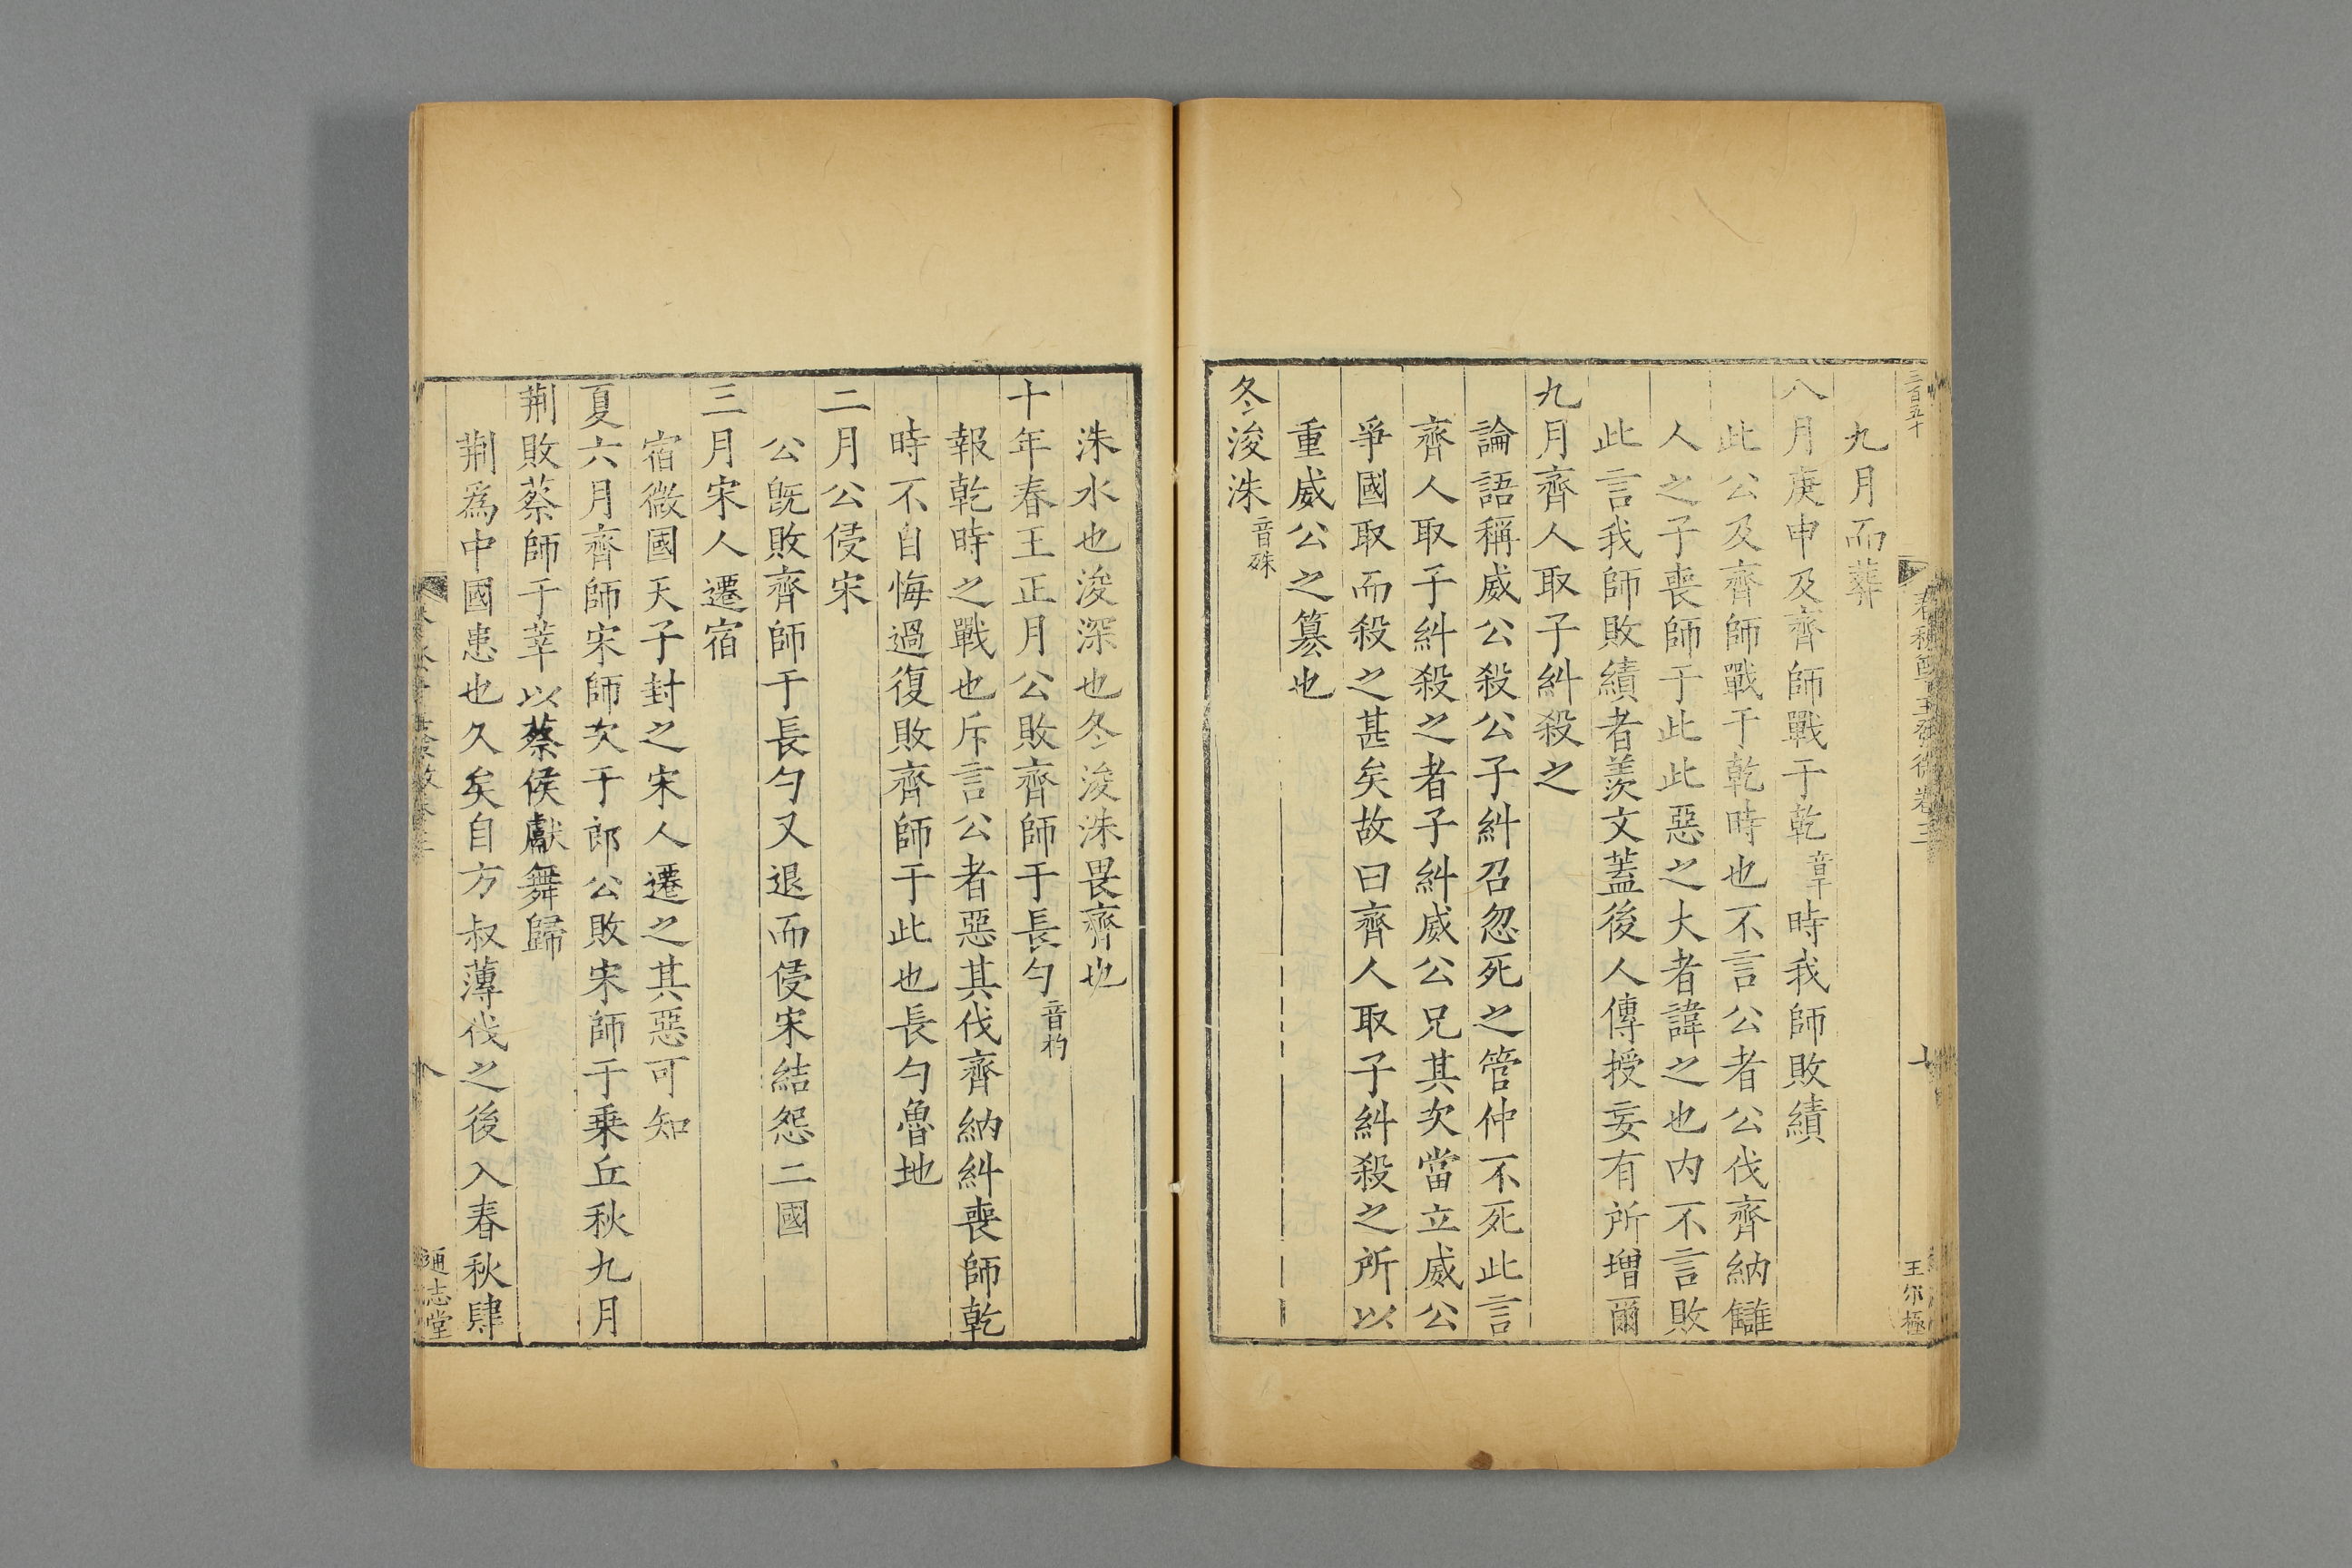 三百五十
春秋尊王發微卷三
十
王尔極
九月而葬
八月庚申及齊師戰于乾音干時我師敗績
此公及齊師戰于乾時也不言公者公伐齊納讎
人之子喪師于此此惡之大者諱之也内不言敗
此言我師敗績者羨文蓋後人傳授妄有所增爾
九月齊人取子糾殺之
論語稱威公殺公子糾召忽死之管仲不死此言
齊人取子糾殺之者子糾威公兄其次當立威公
爭國取而殺之甚矣故曰齊人取子糾殺之所以
重威公之篡也
冬浚洙音殊
洙水也浚深也冬浚洙畏齊也
十年春王正月公敗齊師于長勺音杓
報乾時之戰也斥言公者惡其伐齊納糾喪師乾
時不自悔過復敗齊師于此也長勺魯地
二月公侵宋
公既敗齊師于長勺又退而侵宋結怨二國
三月宋人遷宿
宿微國天子封之宋人遷之其惡可知
夏六月齊師宋師次于郎公敗宋師于乗丘秋九月
荆敗蔡師于莘以蔡侯獻舞歸
荆爲中國患也久矣自方叔薄伐之後入春秋肆
八
通志堂